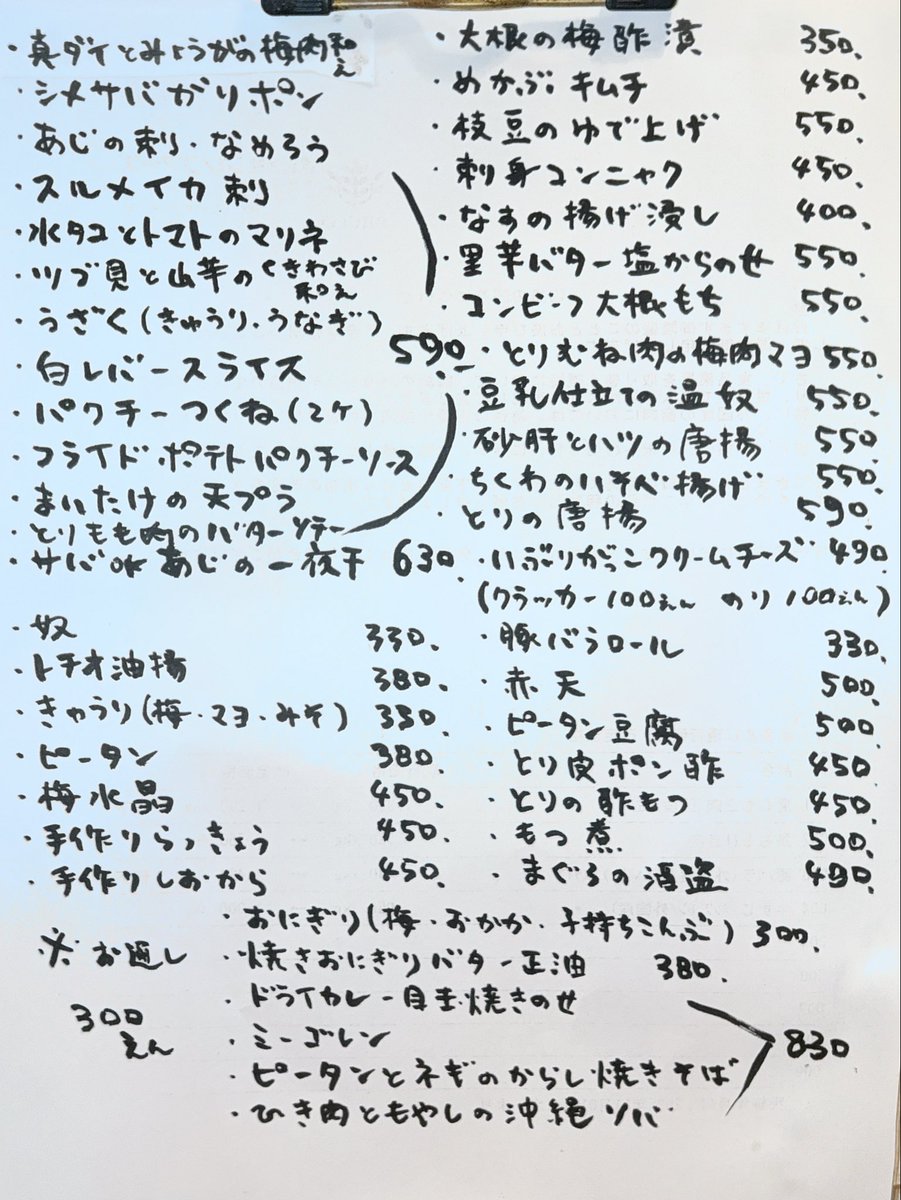 ・真ダイとみょうがの梅肉和え
・シメサバガリポン
・あじの刺・なめろう
・スルメイカ刺
・水タコとトマトのマリネ
・ツブ貝と山芋のくきわさび和え
・うざく(きゅうり・うなぎ)
590.
・白レバースライス
・パクチーつくね(2ケ)
・フライドポテトパクチーソース
・まいたけの天プラ
・とりもも肉のバターソテー
・サバorあじの一夜干 630.
・大根の梅酢漬 350.
・めかぶキムチ 450.
・枝豆のゆで上げ 550.
・刺身コンニャク 450.
・なすの揚げ浸し 400.
・里芋バター塩からのせ 550.
・コンビーフ大根もち 550.
・とりむね肉の梅肉マヨ 550.
・豆乳仕立ての温奴 550.
・砂肝とハツの唐揚 550.
・ちくわのいそべ揚げ 550.
・とりの唐揚 590.
・いぶりがっこクリームチーズ 490
(クラッカー100えん のり100えん)
・奴 330.
・トチオ油揚 380.
・きゅうり(梅・マヨ・みそ) 330.
・ピータン 380.
・梅水晶 450.
・手作りらっきょう 450.
・手作りしおから 450.
・豚バラロール 330.
・赤天 500.
・ピータン豆腐 500.
・とり皮ポン酢 450
・とりの酢もつ 450.
・もつ煮 500.
・まぐろの酒盗 490.
・おにぎり(梅・おかか・子持ちこんぶ) 300.
・焼きおにぎりバター正油 380.
・ドライカレー目玉焼きのせ
・ミーゴレン
・ピータンとネギのからし焼きそば
・ひき肉ともやしの沖縄ソバ
830
※お通し
300
えん